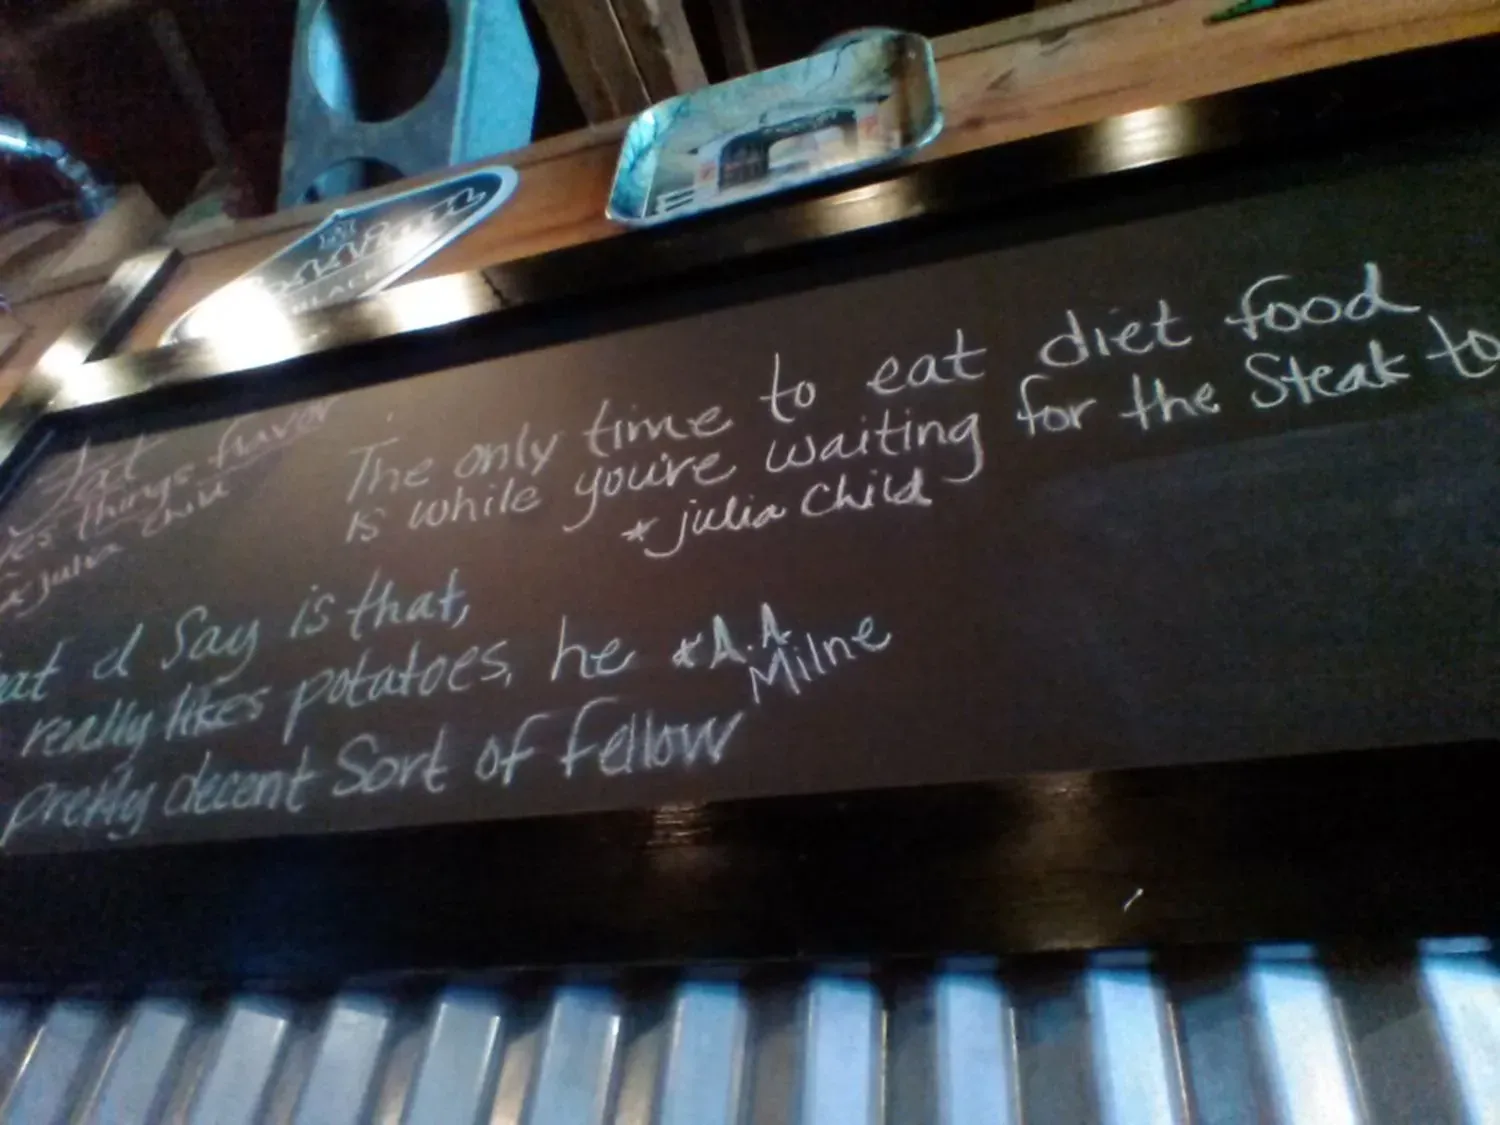 fat
things flavor
*julia child
The only time to eat diet food
is while you're waiting for the Steak to
*julia Child
I Say is that,
really likes potatoes, he
pretty decent Sort of fellow
*A.A
Milne